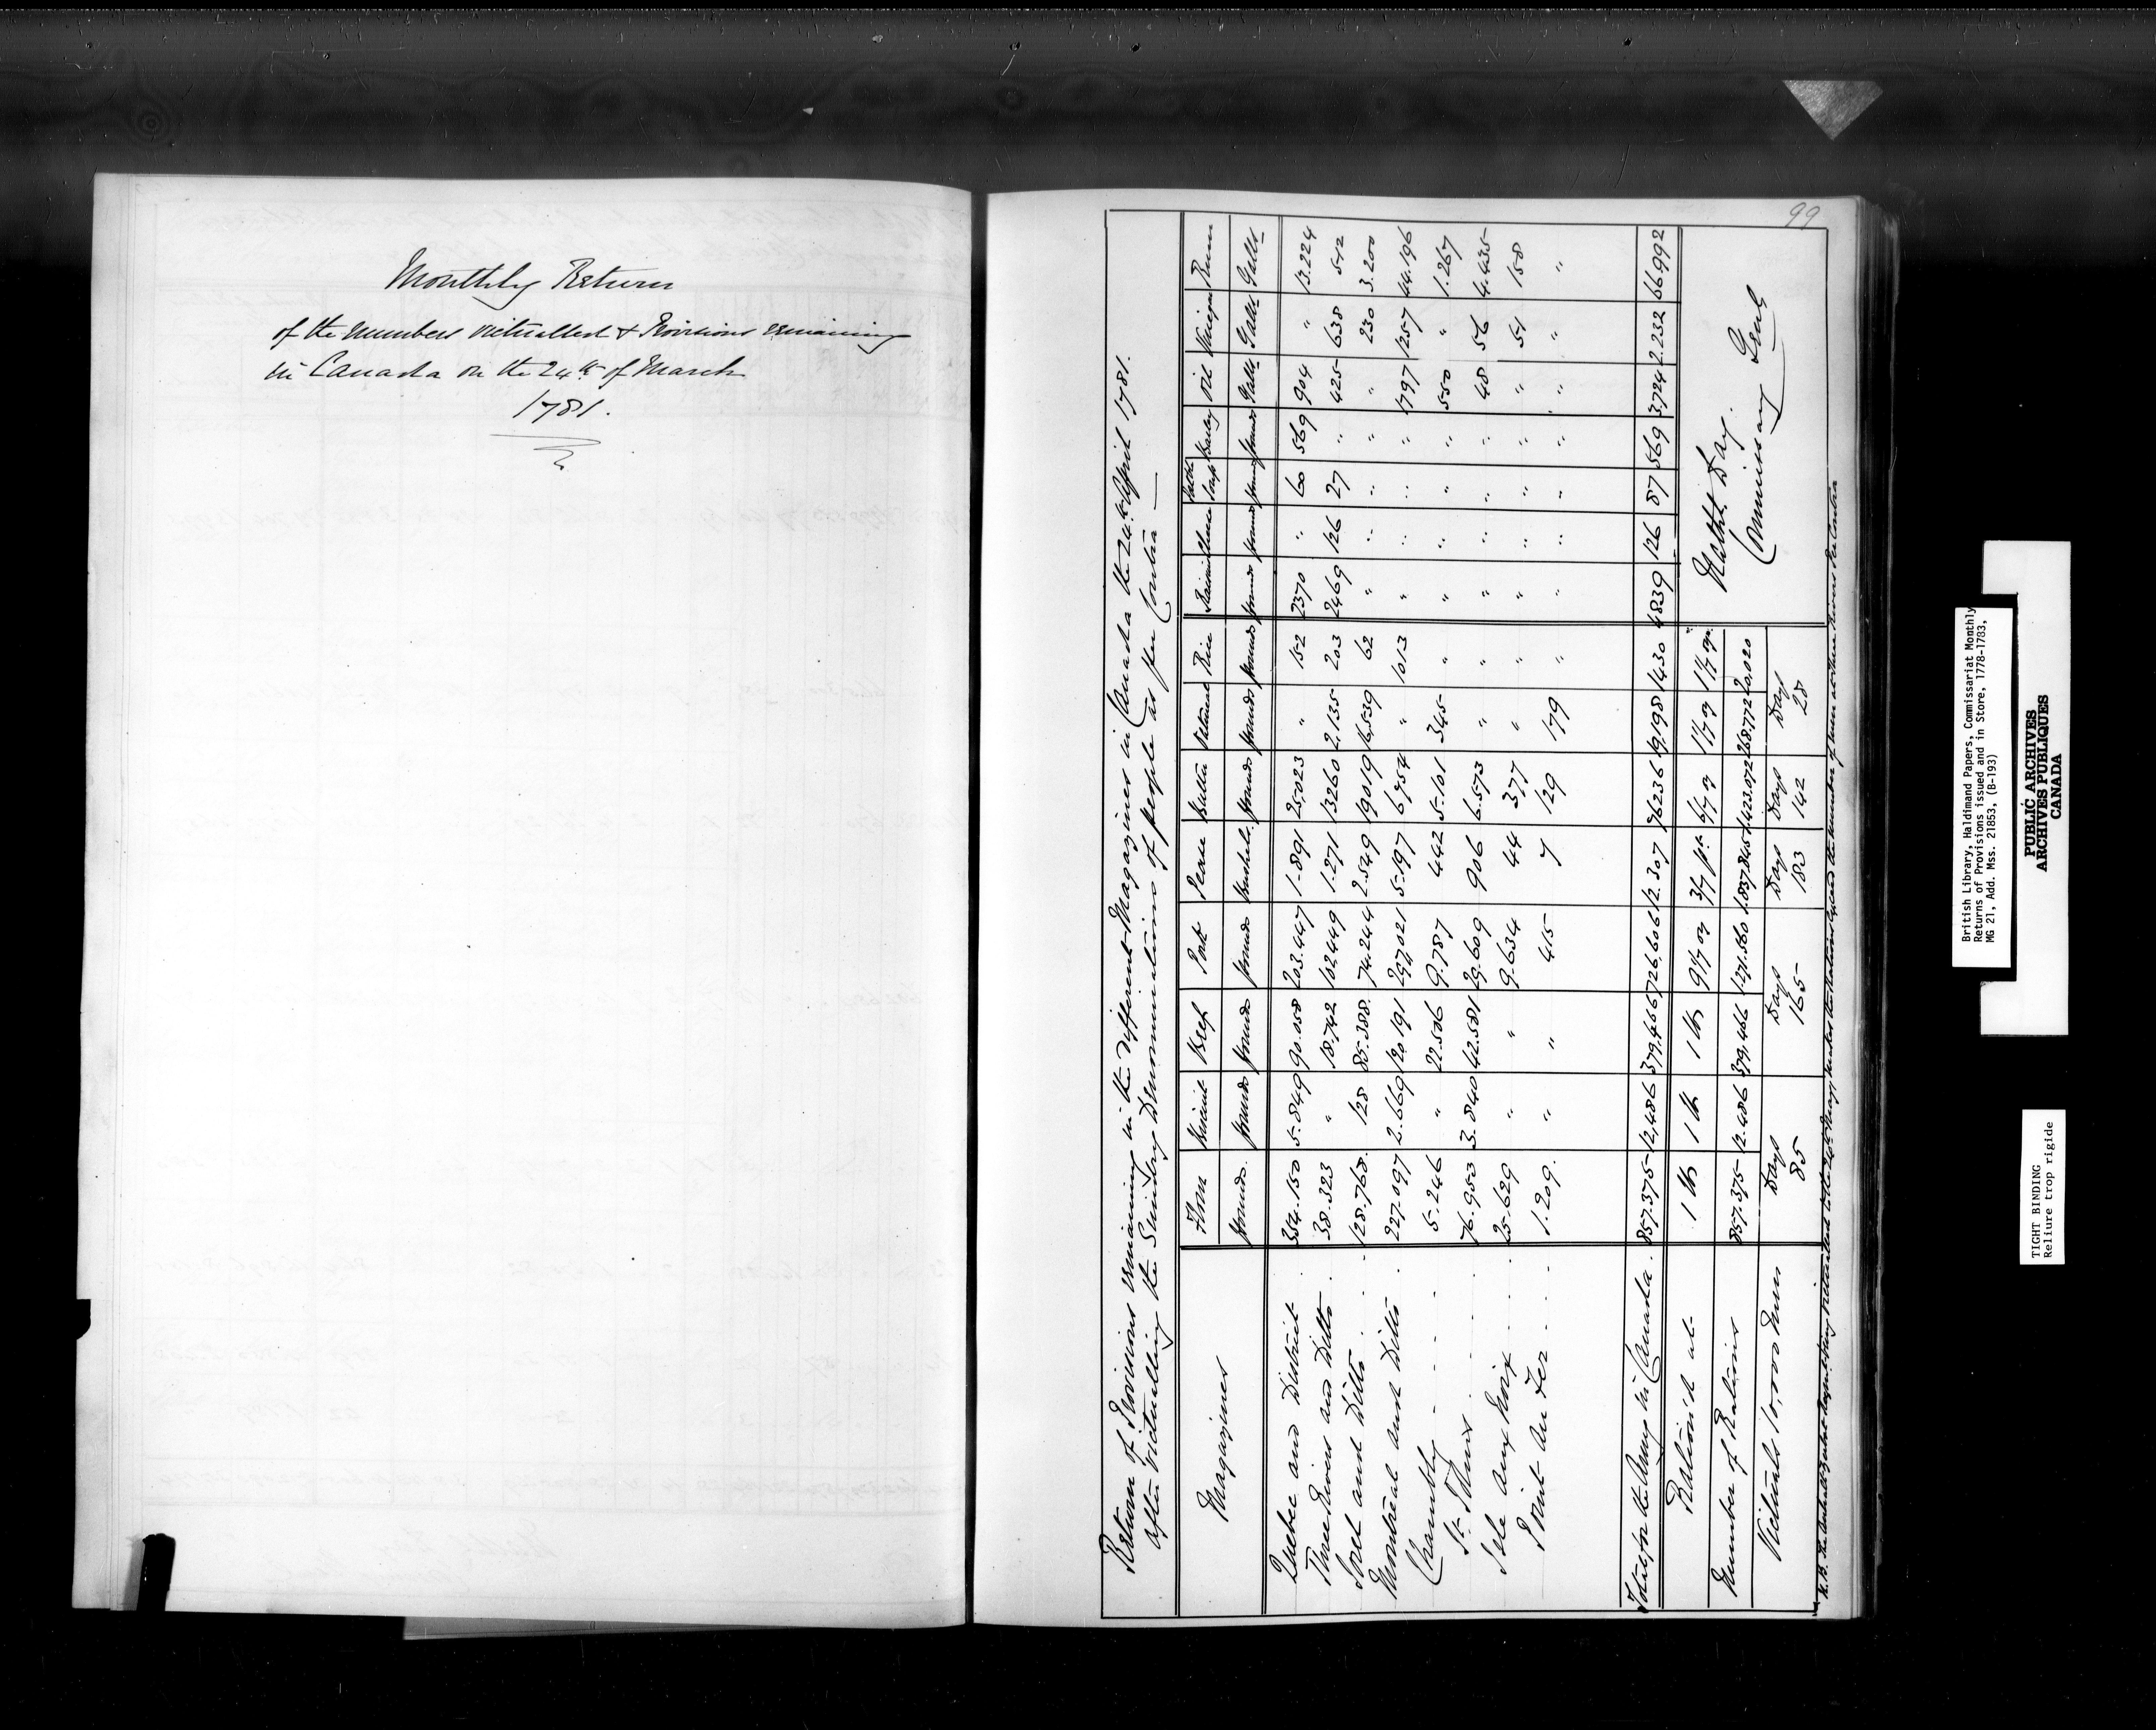 Monthly Return
of the Numbers victualled & Provisions remaining
in Canada on the 24th of March
1781.
99
Return of Provisions remaining in the different Magazines in Canada the 24th April 1781.
after victualling the Sundry Denominations of people as per Contra —
Magazines Flour Biscuit Beef Pork Pease Butter Oatmeal Rice Raisins Cheese Portable Soup Barley Oil Vinegar Rum
Pounds Pounds Pounds Pounds Bushels Pounds Pounds Pounds Pounds Pounds Pounds Pounds Galls Galls Galls
Quebec and District 354.150 5.849 90.058 203.447 1.891 25,023 " 152 2370 " 60 569 904 " 13.224
Three Rivers and Ditto 38.323 " 18.742 102449 1.271 13260 2,135 203 2469 126 27 " 425 638 512
Sorel and Ditto 128.768 128 85.388 74.244 2.549 19019 16,539 62 " " " " " 230 3.200
Montreal and Ditto 227.097 2.669 120191 297,021 5.197 6,754 " 1013 " " " " 1797 1257 44.196
Chambly 5.246 " 22.506 9.787 442 5.101 345 " " " " " 550 " 1.267
St Johns 76.953 3.840 42.581 29.609 906 6.573 " " " " " " 48 56 4.435
Isle Aux Noix 25.629 " " 9.634 44 377 " " " " " " " 51 158
Point Au Fer 1.209. " " 415 7 129 179 " " " " " " " "
Total for the Army in Canada 857.375 12,486 379,466 726,606 12.307 76236 19,198 1430 4839 126 87 569 3,724 2.232 66992
Rations at 1 lb 1 lb 1 lb 9 1/7 oz 3/7 pt 6/7 oz 1 1/7 oz 1 1/7 oz
Number of Rations 857.375 12.486 379,466 1.271.560 1.837.845 1.423.072 268.772 20,020
Victuals 10,000 Men Days 85 Days 165 Days 183 Days 142 Days 28
Nathl. Day.
Commissary Genl
British Library, Haldimand Papers, Commissariat Monthly
Returns of Provisions issued and in Store, 1778-1783,
MG 21, Add. Mss. 21853, (B-193)
PUBLIC ARCHIVES
ARCHIVES PUBLIQUES
CANADA
TIGHT BINDING
Reliure trop rigide